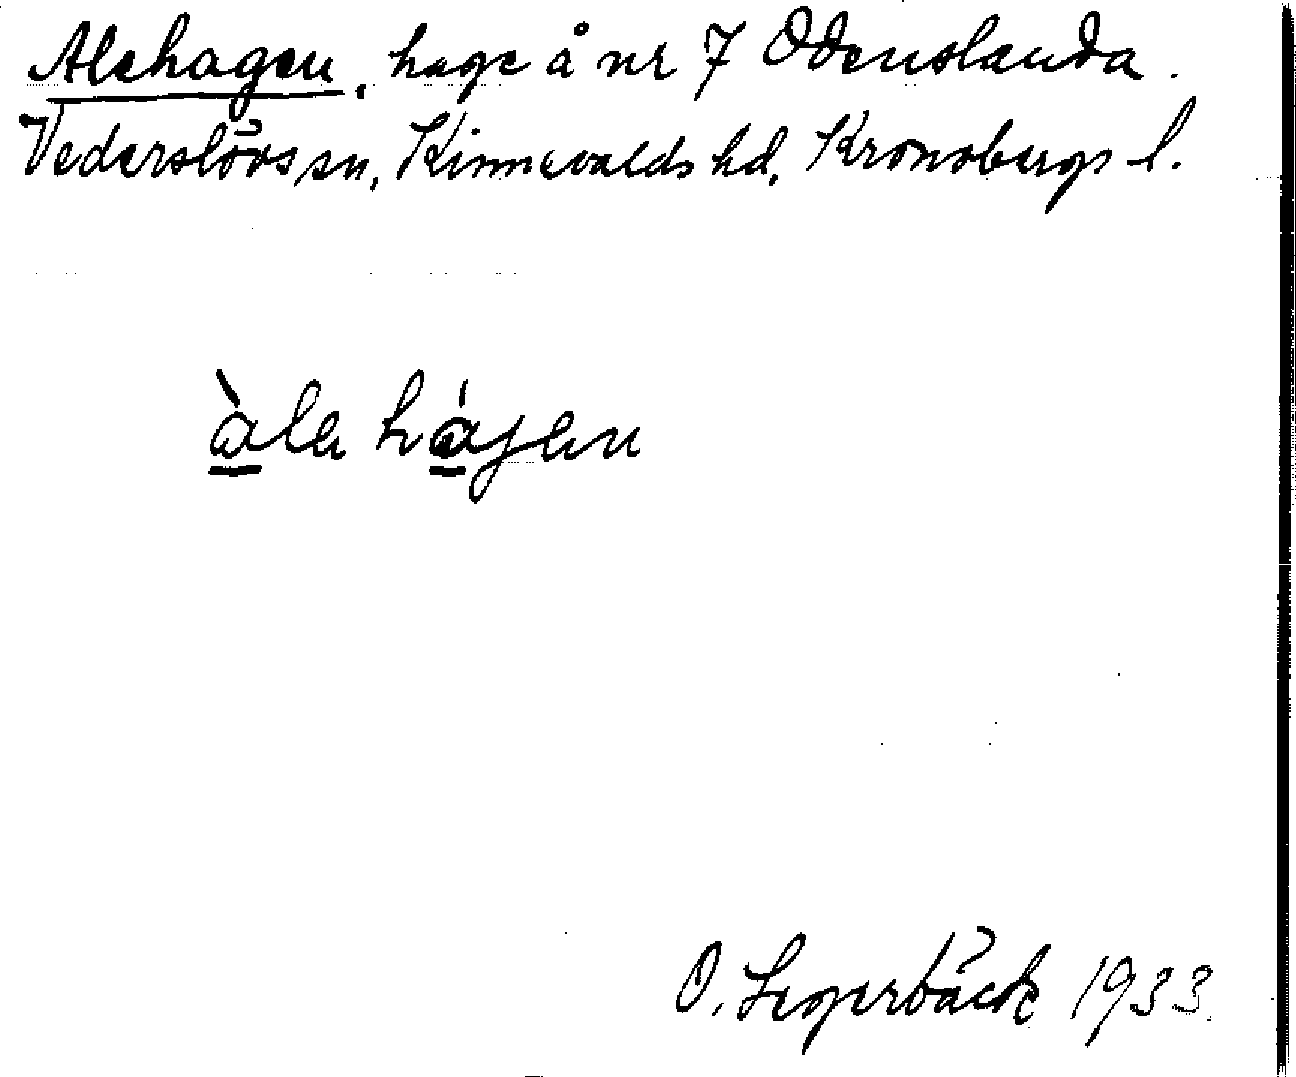 Alehagen, hage å nr 7 Odenslanda.
Vederslövs sn, Kinnevalds hd, Kronobergs l.
àle hágen
O. Segerbäck 1933.